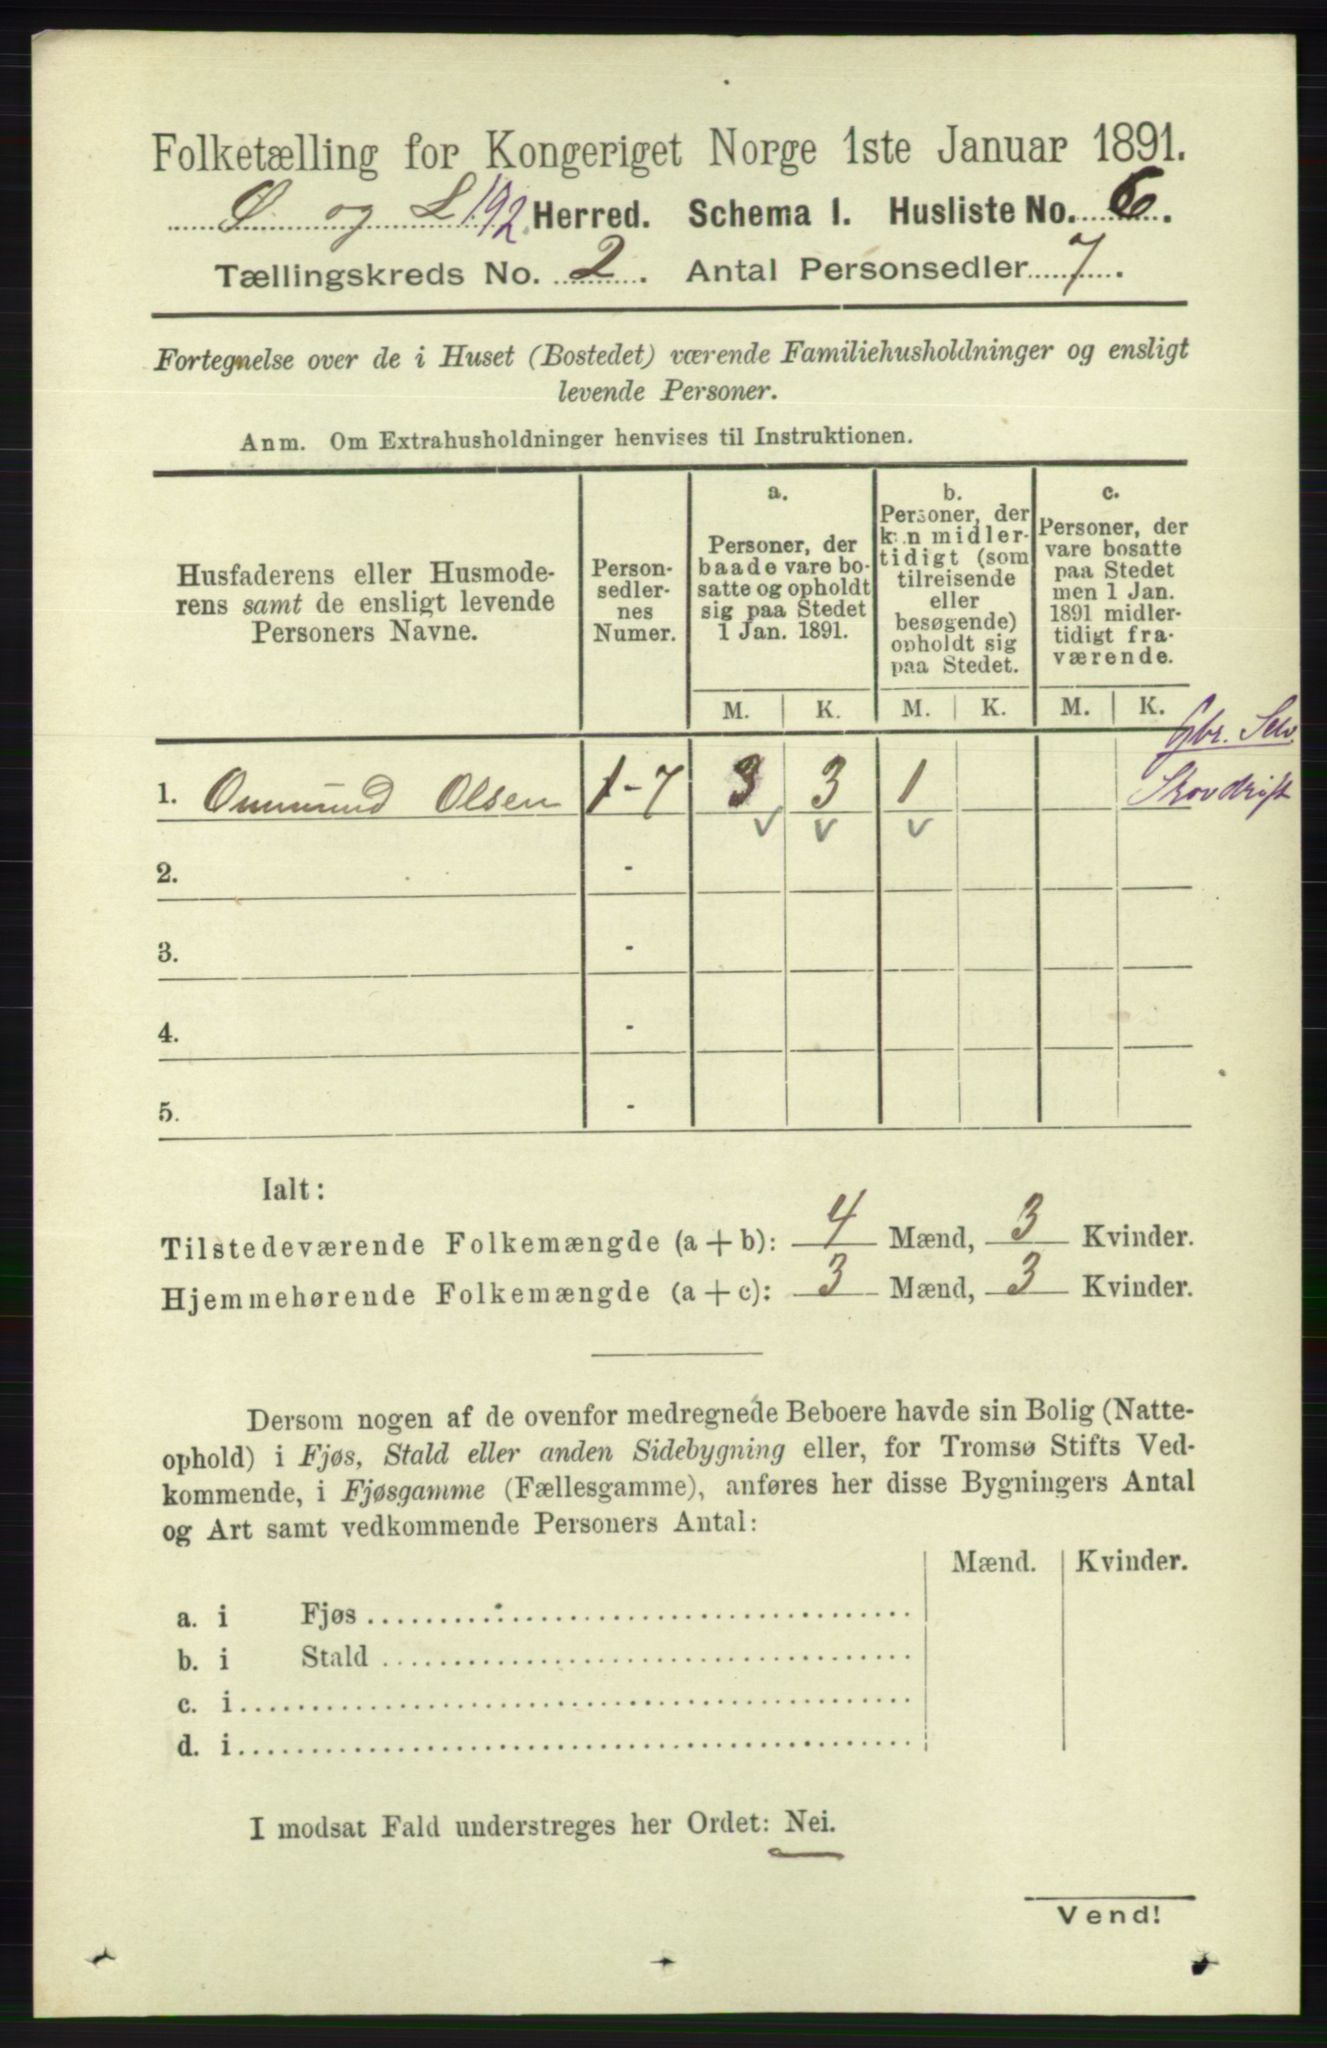 Folketælling for Kongeriget Norge 1ste Januar 1891.
Ø. og L. 192 Herred. Schema 1. Husliste No. 6.
Tællingskreds No. 2. Antal Personsedler 7.
Fortegnelse over de i Huset (Bostedet) værende Familiehusholdninger og ensligt
levende Personer.
Anm. Om Extrahusholdninger henvises til Instruktionen.
Husfaderens eller Husmode-
rens samt de ensligt levende
Personers Navne.
Person-
sedler-
nes
Numer.
a.
Personer, der
baade vare bo-
satte og opholdt
sig paa Stedet
1 Jan. 1891.
b.
Personer, der
kun midler-
tidigt (som
tilreisende
eller
besøgende)
opholdt sig
paa Stedet.
c.
Personer, der
vare bosatte
paa Stedet
men 1 Jan.
1891 midler-
tidigt fra-
værende.
M. K. M. K. M. K.
Gbr. Selv
1. Ommund Olsen 1-7 3 3 1 Skovdrift
v v v
2. -
3. -
4. -
5. -
Ialt:
Tilstedeværende Folkemængde (a + b): 4 Mænd, 3 Kvinder.
Hjemmehørende Folkemængde (a + c): 3 Mænd, 3 Kvinder.
Dersom nogen af de ovenfor medregnede Beboere havde sin Bolig (Natte-
ophold) i Fjøs, Stald eller anden Sidebygning eller, for Tromsø Stifts Ved-
kommende, i Fjøsgamme (Fællesgamme), anføres her disse Bygningers Antal
og Art samt vedkommende Personers Antal:
Mænd. Kvinder.
a. i Fjøs
b. i Stald
c. i
d. i
I modsat Fald understreges her Ordet: Nei.
Vend!